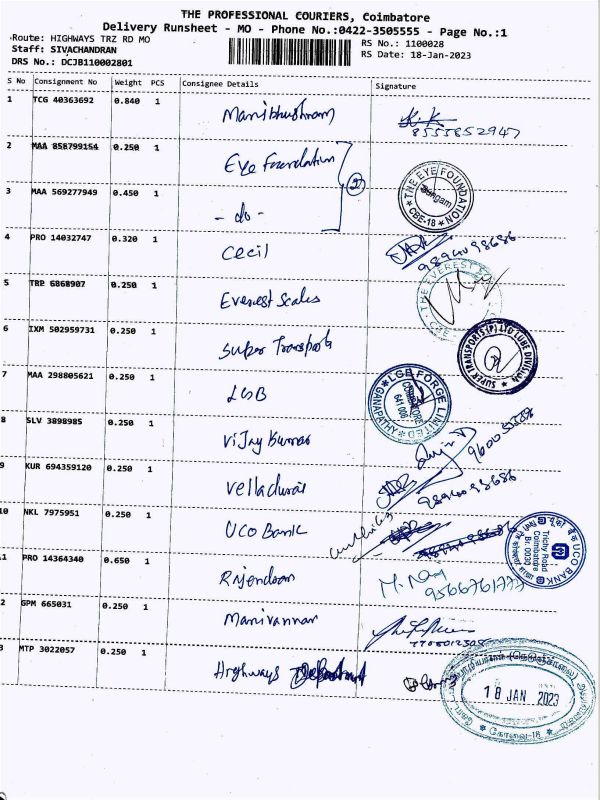 THE PROFESSIONAL COURIERS, Coimbatore
Delivery Runsheet - MO - Phone No.:0422-3505555 - Page No.:1
Route: HIGHWAYS TRZ RD MO
RS No.: 1100028
Staff: SIVACHANDRAN
RS Date: 18-Jan-2023
DRS No.: DCJB110002801
S No Consignment No Weight PCS Consignee Details Signature
1 TCG 40363692 0.840 1 Manibhushnam
8555852947
2 MAA 858799154 0.250 1 Eye Foundation
THE EYE FOUNDATION
CBE-18
3 MAA 569277949 0.450 1 - do -
2
4 PRO 14032747 0.320 1 Cecil
9894098686
5 TRP 6868907 0.250 1 Everest Scales
THE EVEREST
CBE
6 IXM 502959731 0.250 1 Super Transports
SUPER TRANSPORTS (P) LTD LUBE DIVISION
7 MAA 298805621 0.250 1 LGB
LGB FORGE LIMITED
COIMBATORE
641 006
GANAPATHY
8 SLV 3898985 0.250 1 Vijay Kumar
9 KUR 694359120 0.250 1 Velladurai
9894098686
10 NKL 7975951 0.250 1 UCO Bank
UCO BANK
Trichy Road
Coimbatore
Br. 0030
11 PRO 14364340 0.650 1 Rajendran
12 GPM 665031 0.250 1 Manivannan
13 MTP 3022057 0.250 1 Highways Department
18 JAN 2023
கோவை-18